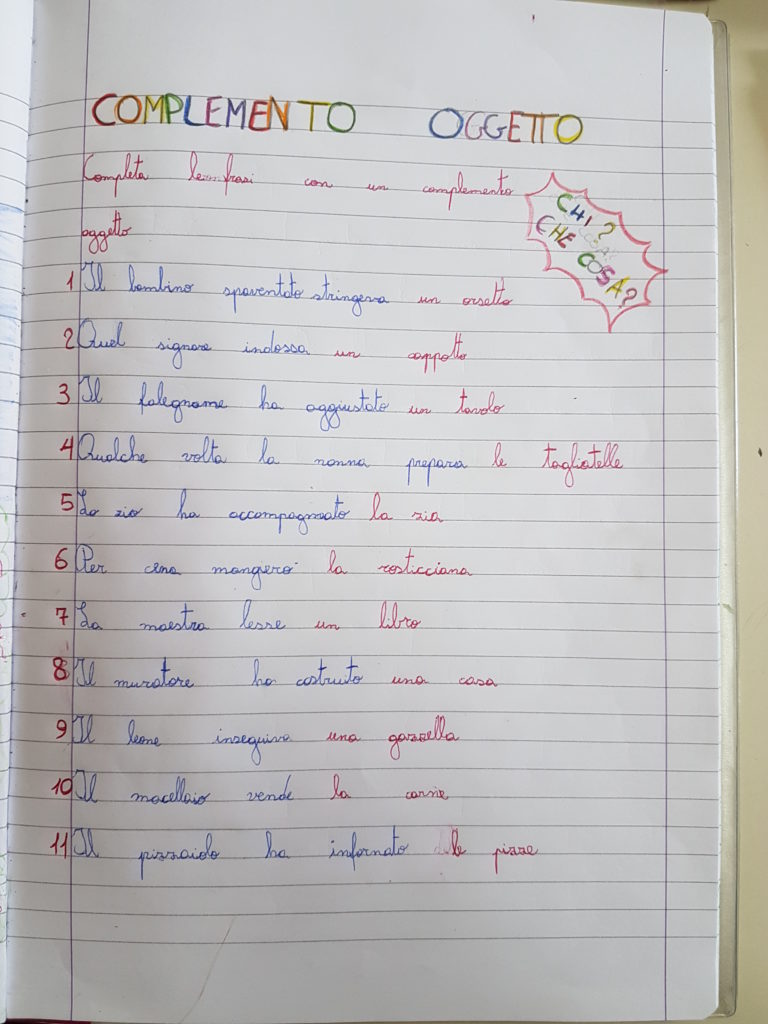 COMPLEMENTO OGGETTO
Completa le frasi con un complemento
oggetto
CHI?
CHE COSA?
1 Il bambino spaventato stringeva un orsetto
2 Quel signore indossa un cappotto
3 Il falegname ha aggiustato un tavolo
4 Qualche volta la nonna prepara le tagliatelle
5 Lo zio ha accompagnato la zia
6 Per cena mangerò la rosticciana
7 La maestra lesse un libro
8 Il muratore ha costruito una casa
9 Il leone inseguiva una gazzella
10 Il macellaio vende la carne
11 Il pizzaiolo ha infornato le pizze